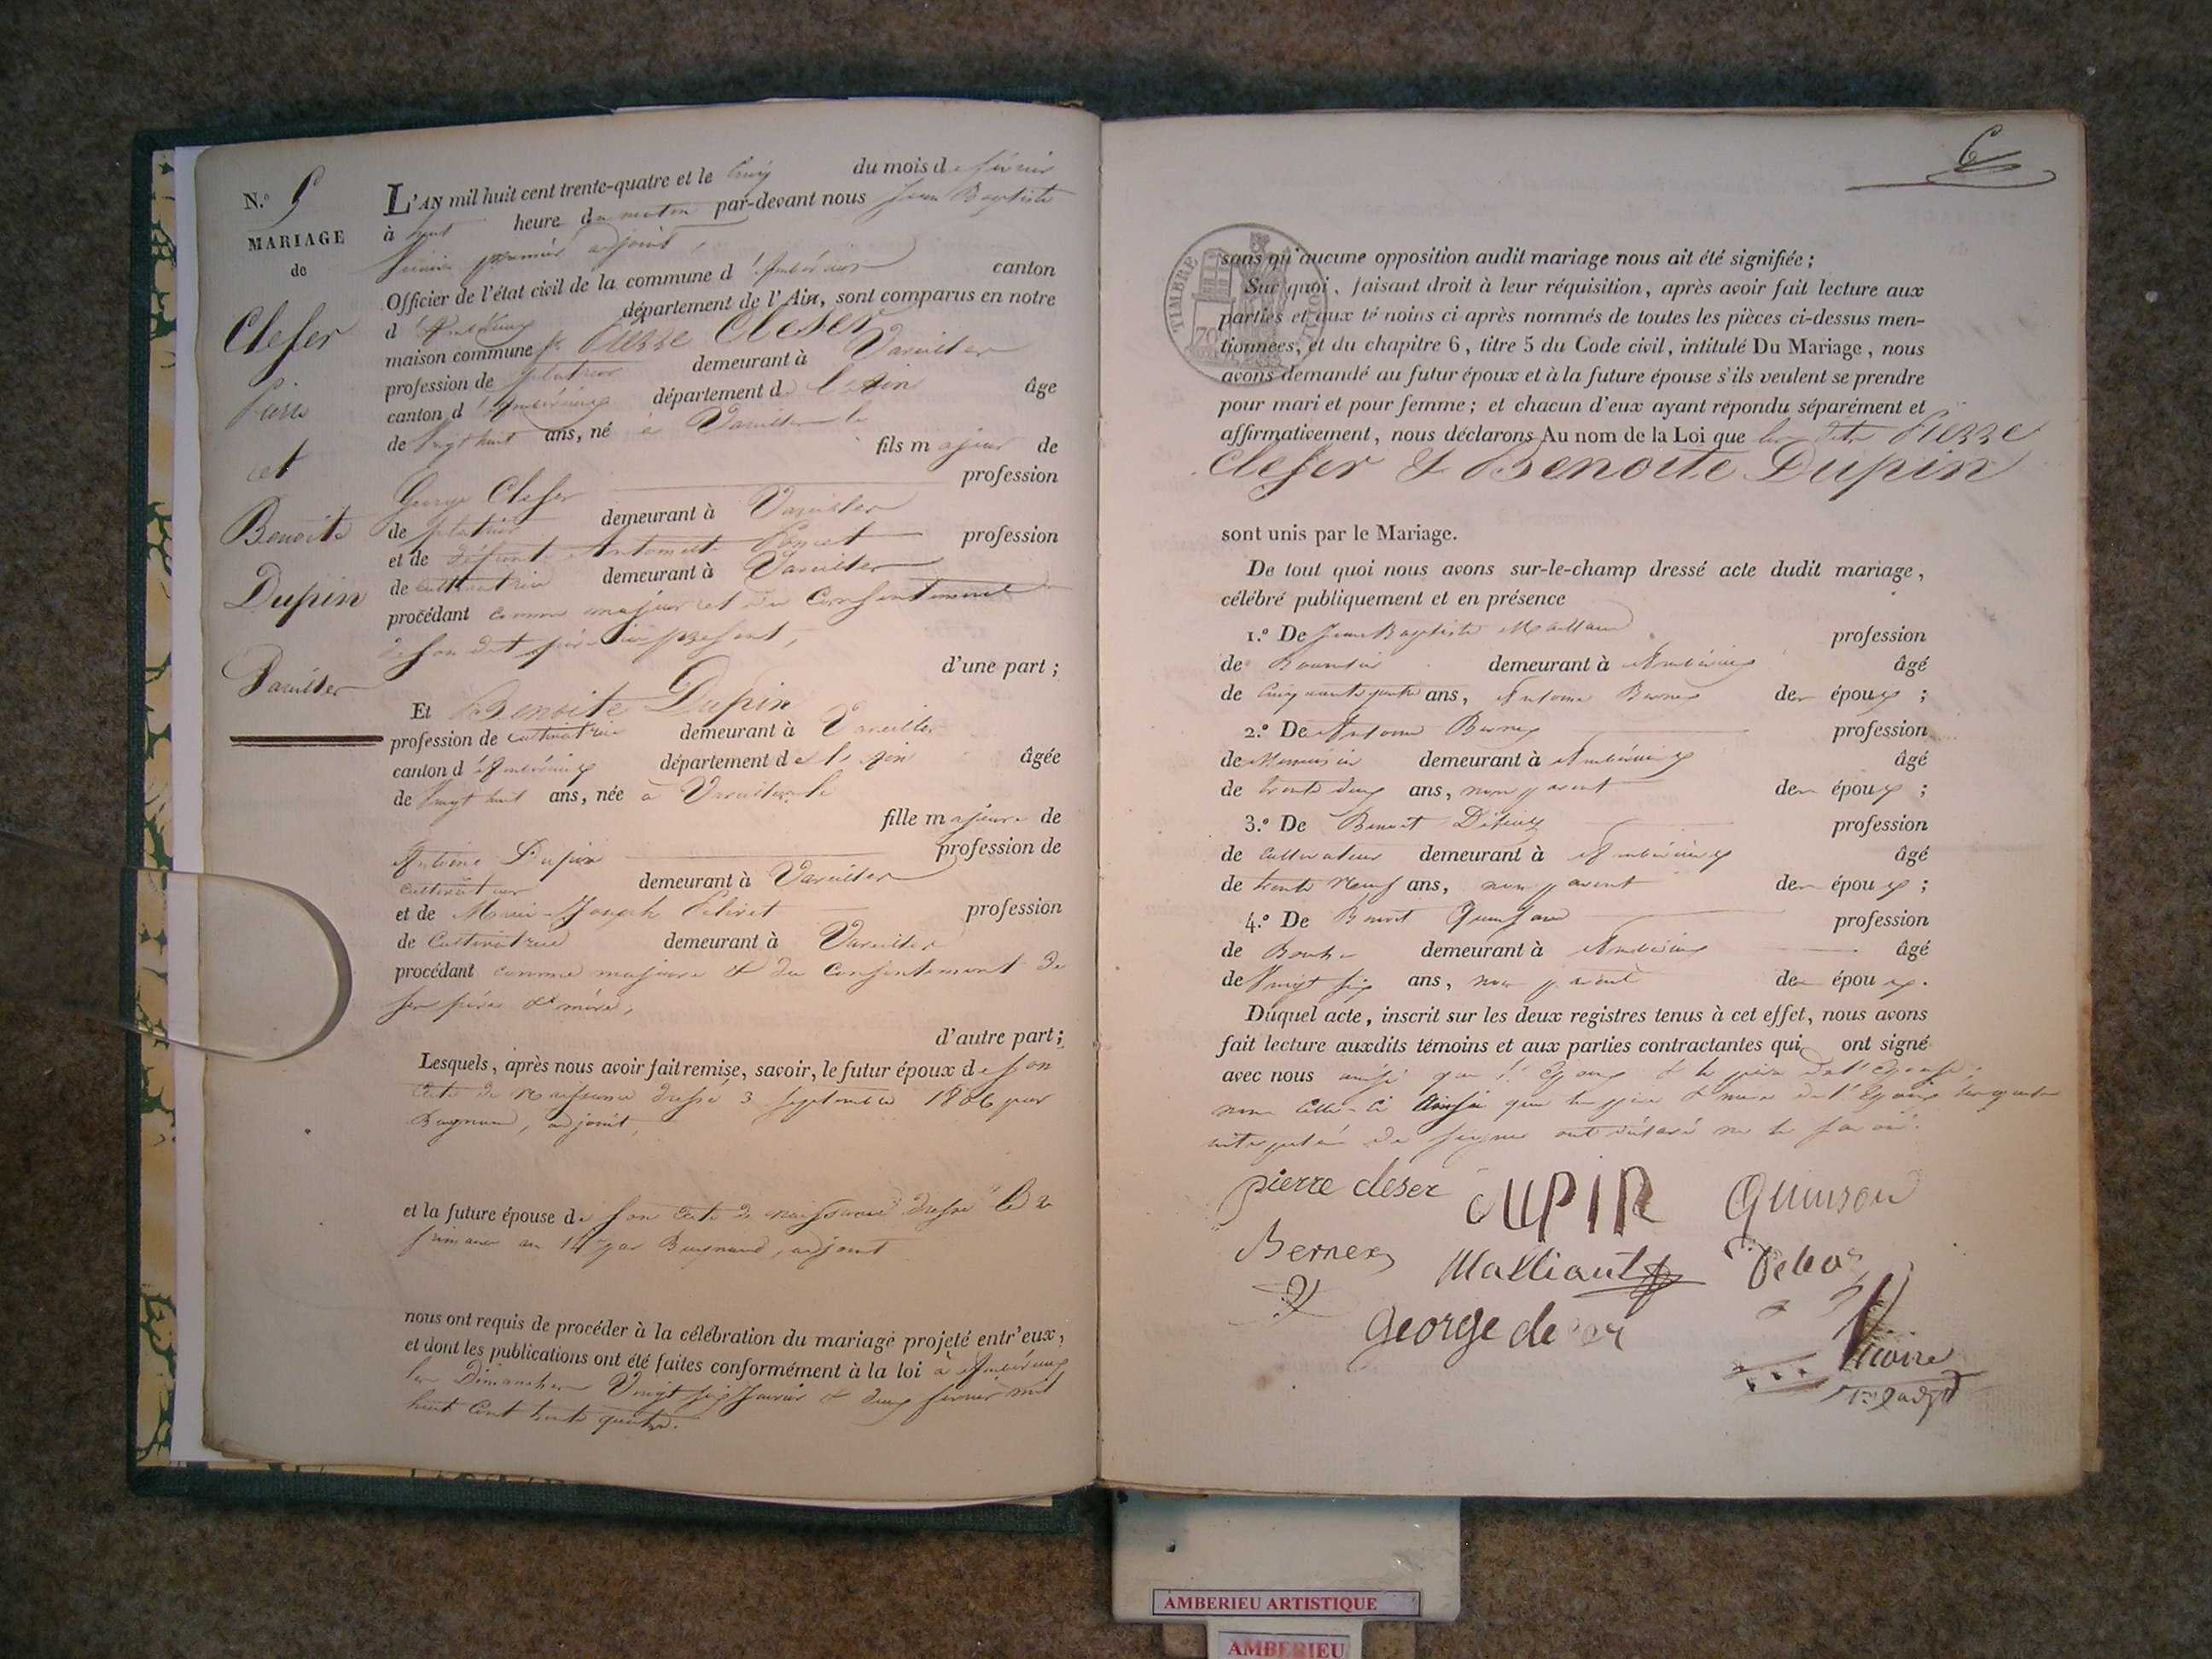 N.º 5
MARIAGE
de
Cleser
et
Benoite
Dupin
Vareilles
L'AN mil huit cent trente-quatre et le Cinq du mois de février
à huit heure du matin par-devant nous Jean Baptiste
premier adjoint,
Officier de l'état civil de la commune d'Ambérieux canton
d'Ambérieux département de l'Ain, sont comparus en notre
maison commune Pierre Cleser
profession de platrier demeurant à Vareilles
canton d'Ambérieux département de l'Ain âgé
de Vingt huit ans, né à Vareilles le
fils majeur de
George Cleser profession
de platrier demeurant à Vareilles
et de défunte Antoinette profession
de cultivatrice demeurant à Vareilles
procédant comme majeur et du Consentement
de son dit père ici présent,
d'une part ;
Et Benoite Dupin
profession de cultivatrice demeurant à Vareilles
canton d'Ambérieux département de l'Ain âgée
de Vingt huit ans, née à Vareilles le
fille majeure de
Antoine Dupin profession de
cultivateur demeurant à Vareilles
et de Marie-Joseph profession
de Cultivatrice demeurant à Vareilles
procédant comme majeure & du Consentement de
ses père & mère,
d'autre part ;
Lesquels, après nous avoir fait remise, savoir, le futur époux de son
acte de naissance dressé 3 septembre 1806 par
adjoint,
et la future épouse de son acte de naissance dressé le 2
frimaire an 14 par adjoint
nous ont requis de procéder à la célébration du mariage projeté entr'eux,
et dont les publications ont été faites conformément à la loi à Ambérieux
les Dimanches Vingt six Janvier & deux février mil
huit Cent trente quatre.
6
TIMBRE
70
sans qu'aucune opposition audit mariage nous ait été signifiée ;
Sur quoi, faisant droit à leur réquisition, après avoir fait lecture aux
parties et aux témoins ci après nommés de toutes les pièces ci-dessus men-
tionnées, et du chapitre 6, titre 5 du Code civil, intitulé Du Mariage, nous
avons demandé au futur époux et à la future épouse s'ils veulent se prendre
pour mari et pour femme ; et chacun d'eux ayant répondu séparément et
affirmativement, nous déclarons Au nom de la Loi que les dits Pierre
Cleser & Benoite Dupin
sont unis par le Mariage.
De tout quoi nous avons sur-le-champ dressé acte dudit mariage,
célébré publiquement et en présence
1.º De Jean Baptiste profession
de demeurant à Ambérieux âgé
de Cinquante quatre ans, des époux ;
2.º De Antoine profession
de Menuisier demeurant à Ambérieux âgé
de trente deux ans, non parent des époux ;
3.º De Benoit profession
de Cultivateur demeurant à Ambérieux âgé
de trente neuf ans, non parent des époux ;
4.º De Benoit Quinson profession
de demeurant à Ambérieux âgé
de Vingt six ans, non parent des époux.
Duquel acte, inscrit sur les deux registres tenus à cet effet, nous avons
fait lecture auxdits témoins et aux parties contractantes qui ont signé
avec nous ainsi que l'Epoux & le père de l'Epouse,
non Celle-Ci Ainsi que la mère de l'Epouse
de signer ont déclaré ne le savoir.
pierre cleser
Quinson
Berner
Malliant
George
AMBERIEU ARTISTIQUE
AMBERIEU